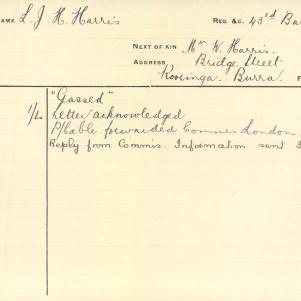 NAME L. J. H. Harris REG. &C. 43rd Ba
NEXT OF KIN Mr W. Harris.
ADDRESS Bridge Street
Kooringa. Burra.
"Gassed"
1/L Letter acknowledged
P/Cable forwarded Commis London
Reply from Commis. Information sent